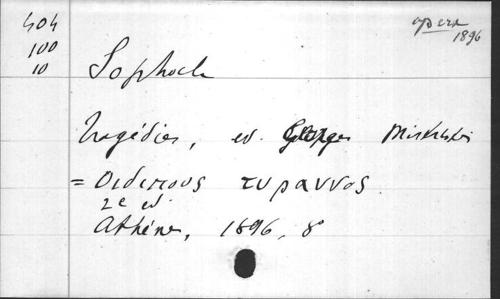 404
100
10
opera
1896
Sophocle
Tragédies, ed. Georges
= οιδιπους τυραννος
2e ed.
Athènes, 1896, 8°